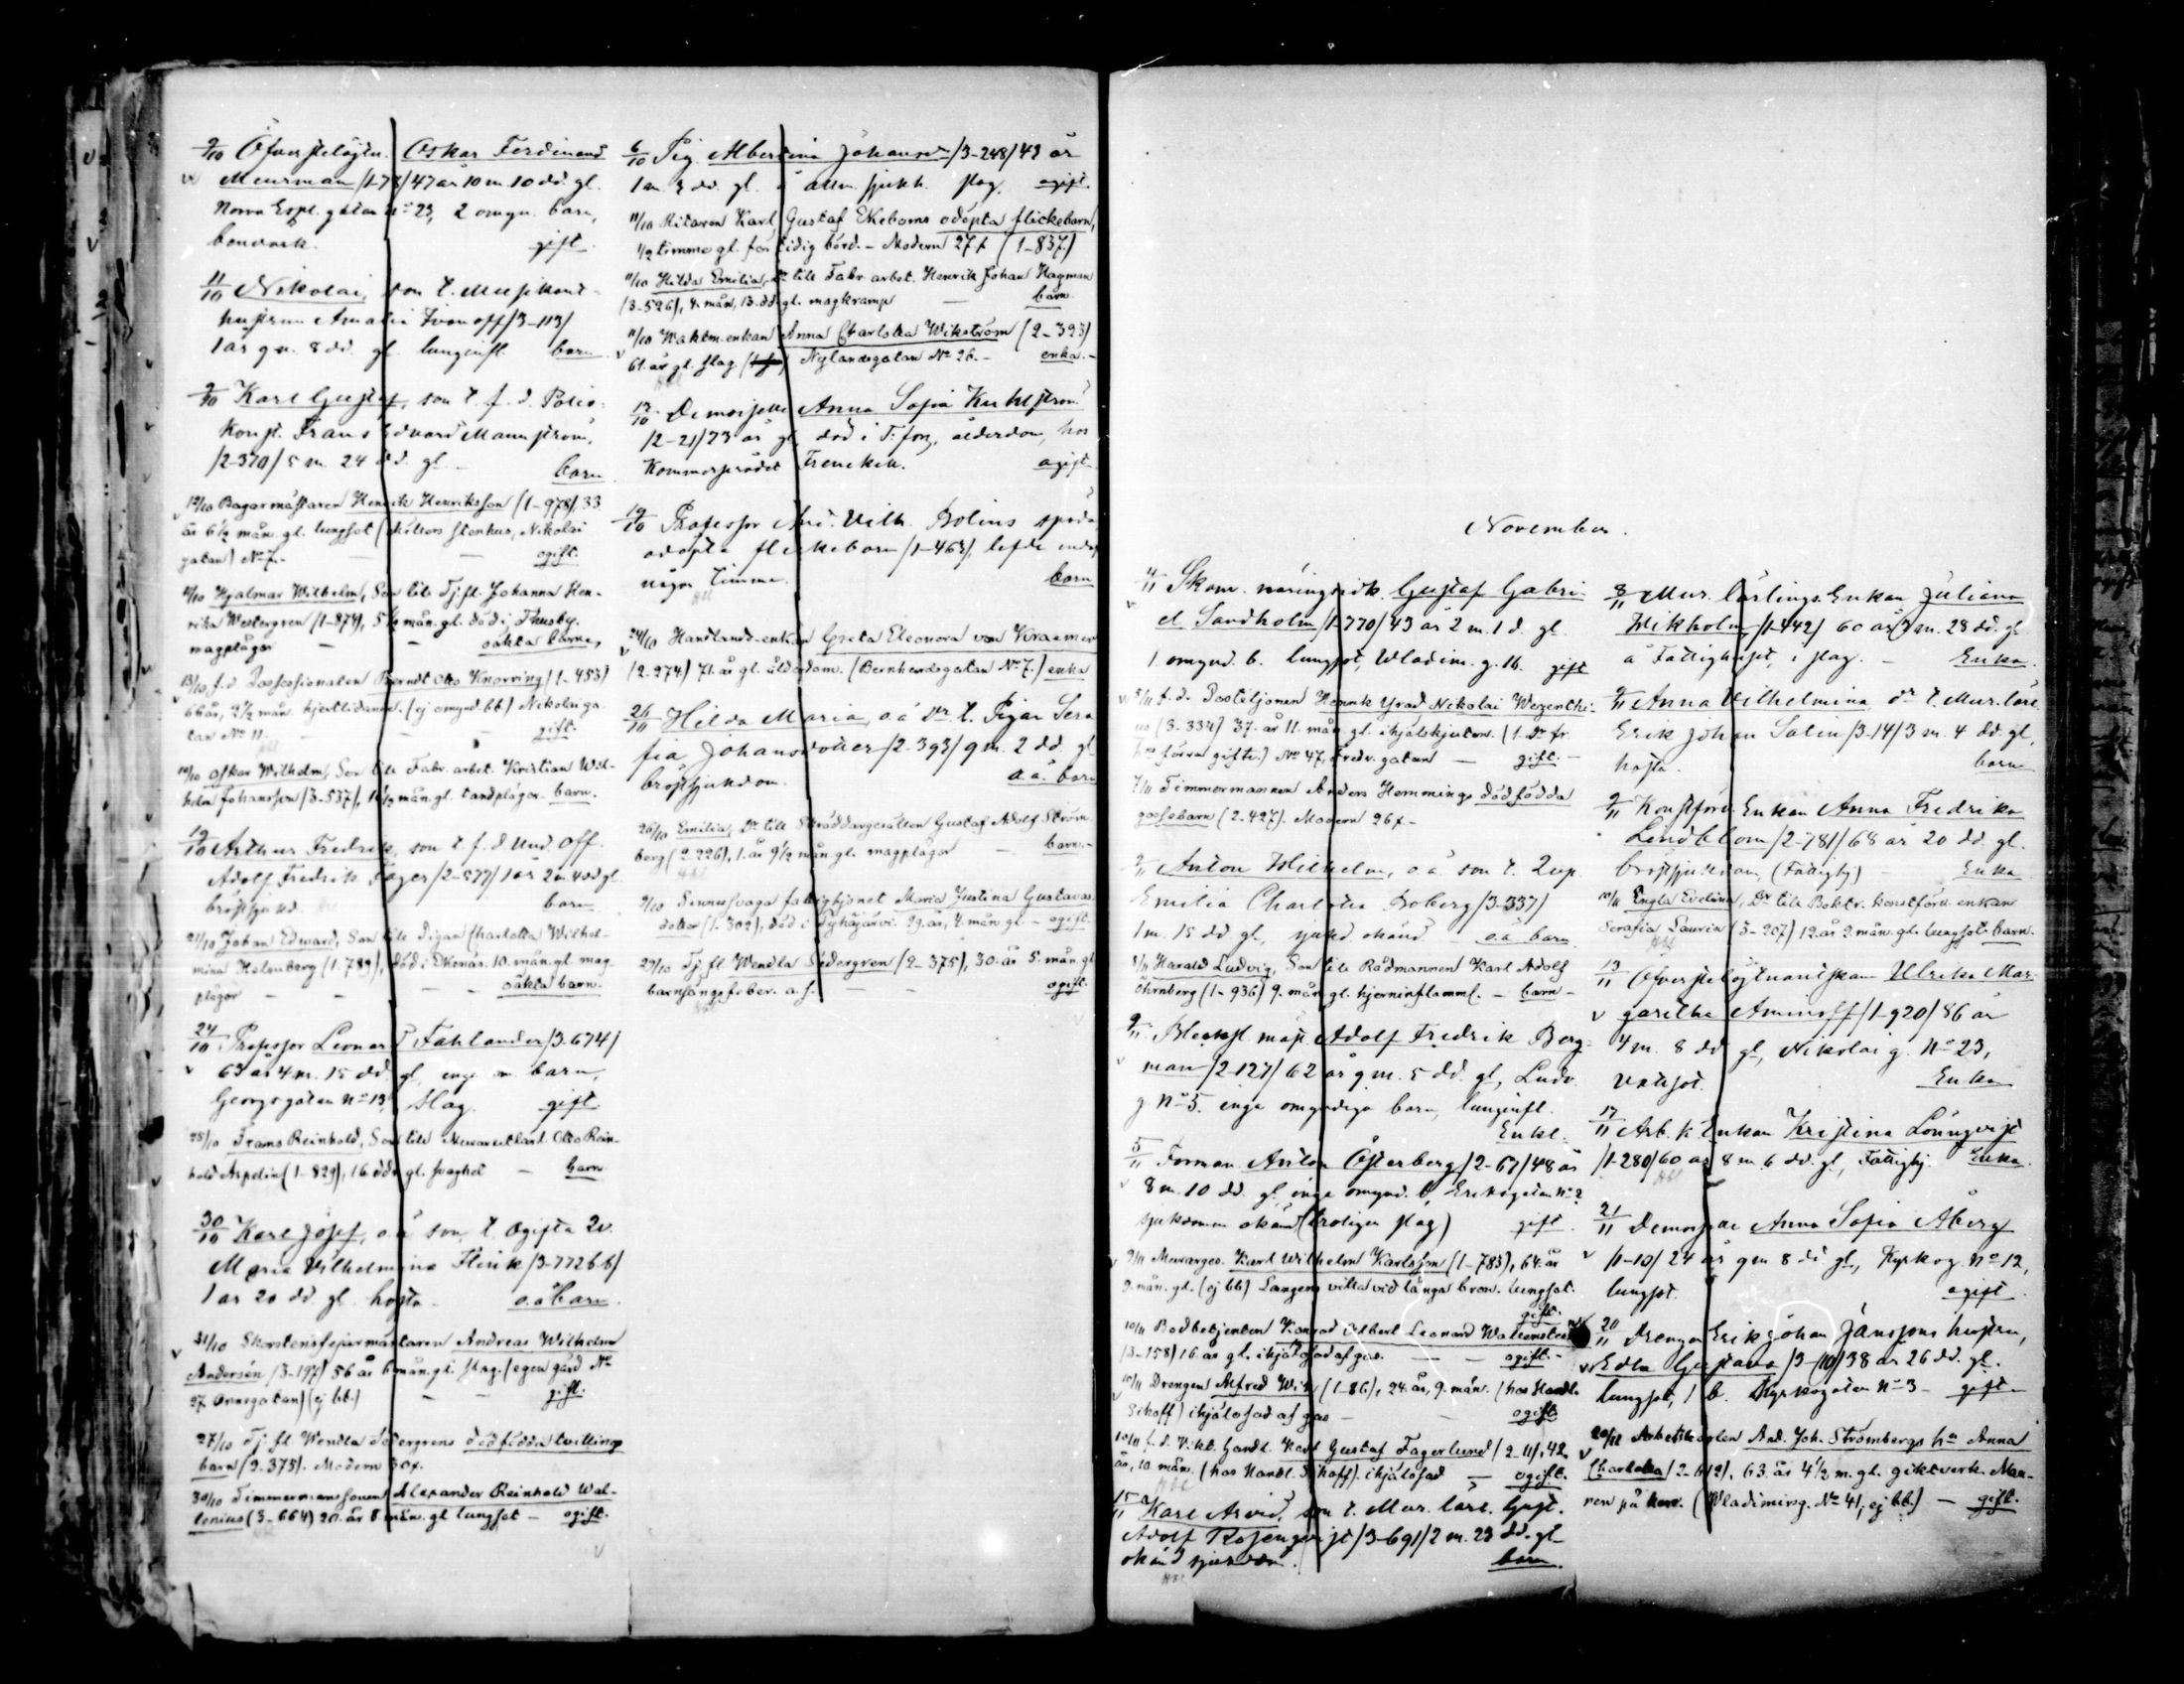 9/10 Öfverstelöjtn. Oskar Ferdinand
Meurman /1-78/ 47 år 10 m. 10 dd. gl.
Norra Espl. gatan No 23, 2 omyn. barn,
gift.
11/10 Nikolai, son t. Musikant
hustrun Amalia Ivanoff /3-113/
1 år 9 m. 8 dd. gl. lunginfl. barn
9/10 Karl Gustaf, son t. f. d. Polis
Konst. Frans Edvard Mannström,
/2-370/ 5 m. 24 dd. gl. barn
12/10 Bagarmästaren Henrik Henriksson (1-978) 33
år 6 1/2 mån. gl. lungsot ( stenhus, Nikolai
gatan) No 7.- ogift.
11/10 Hjalmar Wilhelm, Son till Tj.fl. Johanna Hen-
rika Westergren (1-874), 5 1/2 mån. gl. död i Thusby.
magplågor - - oäkta barn,
13/10 f.d. Possessionaten Berndt Otto Knorring (1-453)
66 år, 9 1/2 mån. hjertlidande. (ej omynd. bb.) Nikolai ga-
tan No 11. - - gift.
14/10 Oskar Wilhelm, Son till Fabr. arbet. Kristian Wil-
helm Johansson (3-537), 1 1/2 mån. gl. tandplågor. barn.
19/10 Arthur Fredrik, son t. f. d. Und. Off.
Adolf Fredrik Jäger /2-577/ 1 år 2 m. 4 dd gl
bröstsjukd barn
21/10 Johan Edward, Son till Pigan Charlotta Wilhel-
mina Helenberg (1-789), död i Ekenäs. 10. mån. gl. mag-
plågor - - oäkta barn.
24/10 Professor Leonard Fahlander /3-674/
63 år 4 m. 15 dd. gl, inga om. barn,
Georgsgatan No 13, slag. gift
25/10 Frans Reinhold, Son till Murareutlärl. Otto Rein-
hold Aspelin (1-829), 16 dd. gl. svaghet - barn
30/10 Karl Josef, o.ä son, t. Ogifta Qv.
Maria Vilhelmina Flink /3-772 bb/
1 år 20 dd. gl. hosta o.ä barn.
31/10 Skorstensfejarmästaren Andreas Wilhelm
Andersén (3-197) 56 år 6 mån. gl. slag. (egen gård No
27. Annegatan) (ej bb.) - - gift.
27/10 Tj. fl. Wendla Södergrens dödfödda tvilling
barn (2-375). Modern 30 x.
30/10 Timmermanssonen Alexander Reinhold Wal-
lenius (3-664) 20 år 8. mån. gl lungsot - ogift.
6/10 Pig. Albertina Johansdr /3-248/ 43 år
1 m. 3 dd. gl. å allm. sjukh. slag, ogift.
11/10 Ritaren Karl Gustaf Ekeboms odöpta flickebarn,
1/2 timme gl. för tidig börd. - Modern 27 x (1-837)
11/10 Hilda Emilia, Dr till Fabr. arbet. Henrik Johan Hagman
(3-526), 4. mån, 13. dd. gl. magkramp - barn
11/10 Waktm. enkan Anna Charlotta Wikström (2-393)
61. år gl. slag Nylandsgatan No 26.- enka.-
13/10 Demoiselle Anna Sofia Kuhlström
/2-21/ 73 år gl, död i T:fors, ålderdom, hos
Kommerserådet Frenckell. ogift
19/10 Professor And. Vilh. Bolins späda
odöpta flickebarn /1-463/, lefde endast
några timme. barn
24/10 Handlands-enkan Greta Eleonora von Kraemer
(2-274) 71. år gl. ålderdom. (Bernhardsgatan No 7.) enka
26/10 Hilda Maria, o.ä Dr t. Pigan Sera
fia Johansdotter /2-393/ 9 m. 2 dd. gl
bröstsjukdom. o.ä. barn
26/10 Emilia, Dr till Skräddargesällen Gustaf Adolf Ström-
berg (2-226), 1. år 9 1/2 mån gl. magplågor - barn.-
9/10 Sinnessvaga fattighjonet Maria Justina Gustavas-
dotter (1-302), död i Pyhäjärvi. 29. år, 4. mån. gl - ogift
29/10 Tj. fl. Wendla Södergren (2-375), 30. år 5. mån. gl
barnsängsfeber. a. s. - ogift.
November.
4/11 Skom. näringsidk. Gustaf Gabri-
el Sandholm /1-770/ 43 år 2 m. 1 d. gl
1 omynd. b. lungsot, Wladim. g. 16. gift
5/11 f. d. Postiljonen Henrik Nikolai
(3-334) 37. år 11. mån. gl. ihjälskjuten. (1. Dr fr.
förra gifte.) No 47, Fredr. gatan - gift.-
7/11 Timmermannen Anders Hemmings dödfödda
gossebarn (2-427). Modern 26 x.-
2/11 Anton Wilhelm, o ä son t. Qvp.
Emilia Charlotta Boberg /3-337/
1 m. 15 dd gl, sjukd okänd - o.ä barn
8/11 Harald Ludvig, Son till Rådmannen Karl Adolf
Öhrnberg (1-936) 9. mån gl. hjerninflamm. - barn -
9/11 Blecksl. mäst. Adolf Fredrik Berg-
man /2-127/ 62 år 9 m. 5 dd. gl, Ludv.
g No 5. inga omyndiga barn, lunginfl.
Enkl.
5/11 Forman Anton Österberg /2-67/ 48 år
8 m. 10 dd. gl inga omynd. b, Eriksgatan No 2
sjukdomen okänd (troligen slag) gift
9/11 Murarges. Karl Wilhelm Karlsson (1-783), 64. år
9. mån. gl. (ej bb) Langens villa vid långa bron. lungsot.
gift.
10/11 Bodbetjenten Konrad Albert Leonard
(3-158) 16. år gl. ihjälosad af gas. - - ogift.-
10/11 Drengen Alfred Wik (1-86), 24. år, 9. mån. (hos Handl.
Sikoff) ihjälosad af gas - ogift
10/11 f. d. Vikt. handl. Karl Gustaf Fagerlund (2-11), 42
år, 10. mån. (hos Handl. Sikoff). ihjälosad - ogift.
15/11 Karl Arvid, son t. Mur. lärl. Gust.
Adolf Rosenqvist /3-691/ 2 m. 23 dd. gl
okänd sjukdom. barn.
8/11 Mur. lärlings Enkan Juliana
Wikholm /1-442/ 60 år 3 m. 28 dd. gl
å Fattighuset, i slag. - Enka.
9/11 Anna Vilhelmina, dr t. Mur. lärl.
Erik Johan Salin /3-14/ 3 m. 4 dd. gl,
hosta. barn
9/11 Konstförv. Enkan Anna Fredrika
Lindblom /2-781/ 68 år 20 dd. gl.
bröstsjukdom, (Fattighj) - Enka
10/11 Engla Evelina, Dr till Boktr. konstförv. enkan
Serafia Laurin (3-207) 12. år 2. mån. gl. lungsot. barn.
13/11 Öfverstelöjtnantskan Ulrika Mar-
garetha Aminoff /1-920/ 86 år
4 m. 8 dd gl, Nikolai g. No 23,
Vatsot. Enka
17/11 Arb. k. Enkan Kristina Lönnqvist
/1-280/ 60 år 8 m. 6 dd. gl, Fattighj. Enka.
21/11 Demoiselle Anna Sofia Åberg
/1-10/ 24 år 9 m 8 dd gl, Kyrkog. No 12,
lungsot. ogift.
20/11 Drengen Erik Johan Jánssons hustru,
Edla Gustava /3-10/ 38 år 26 dd. gl.
lungsot, 1 b. Kyrkogatan No 3 - gift -
And. Joh. Strömbergs hu Anna
Charlotta (2-612), 63. år 4 1/2 m. gl. giktverk. Man-
nen på (Wladimirsg. No 41, ej bb.) - gift.